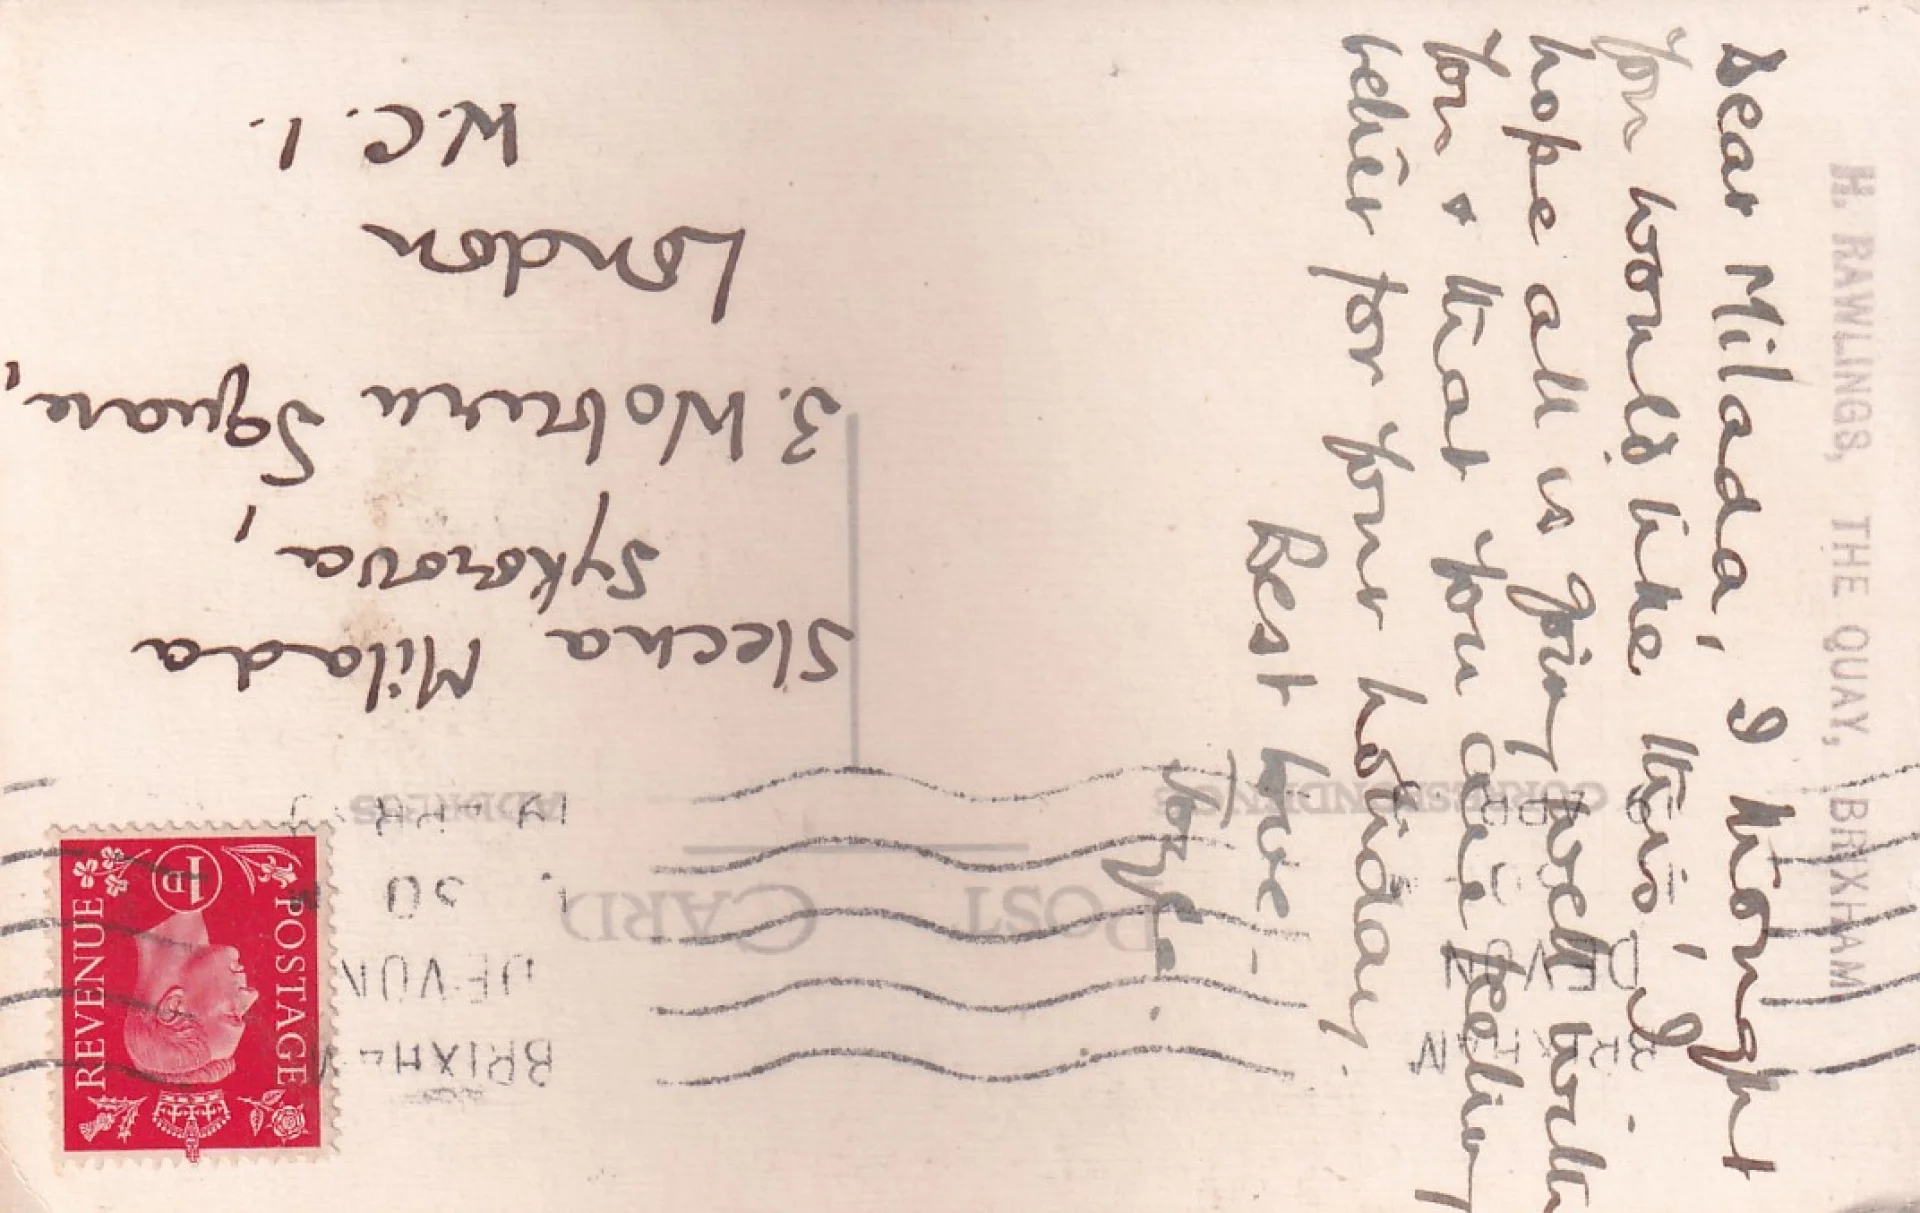 H. RAWLINGS, THE QUAY, BRIXHAM.
Dear Milada, I thought
you would like this, I
hope all is going well with
you & that you are feeling
better for your holiday.
Best love –
POST CARD
CORRESPONDENCE
ADDRESS
BRIXHAM
DEVON
Slecna Milada
Sykorova,
3. Woburn Square,
London
W.C.1.
POSTAGE
REVENUE
1D